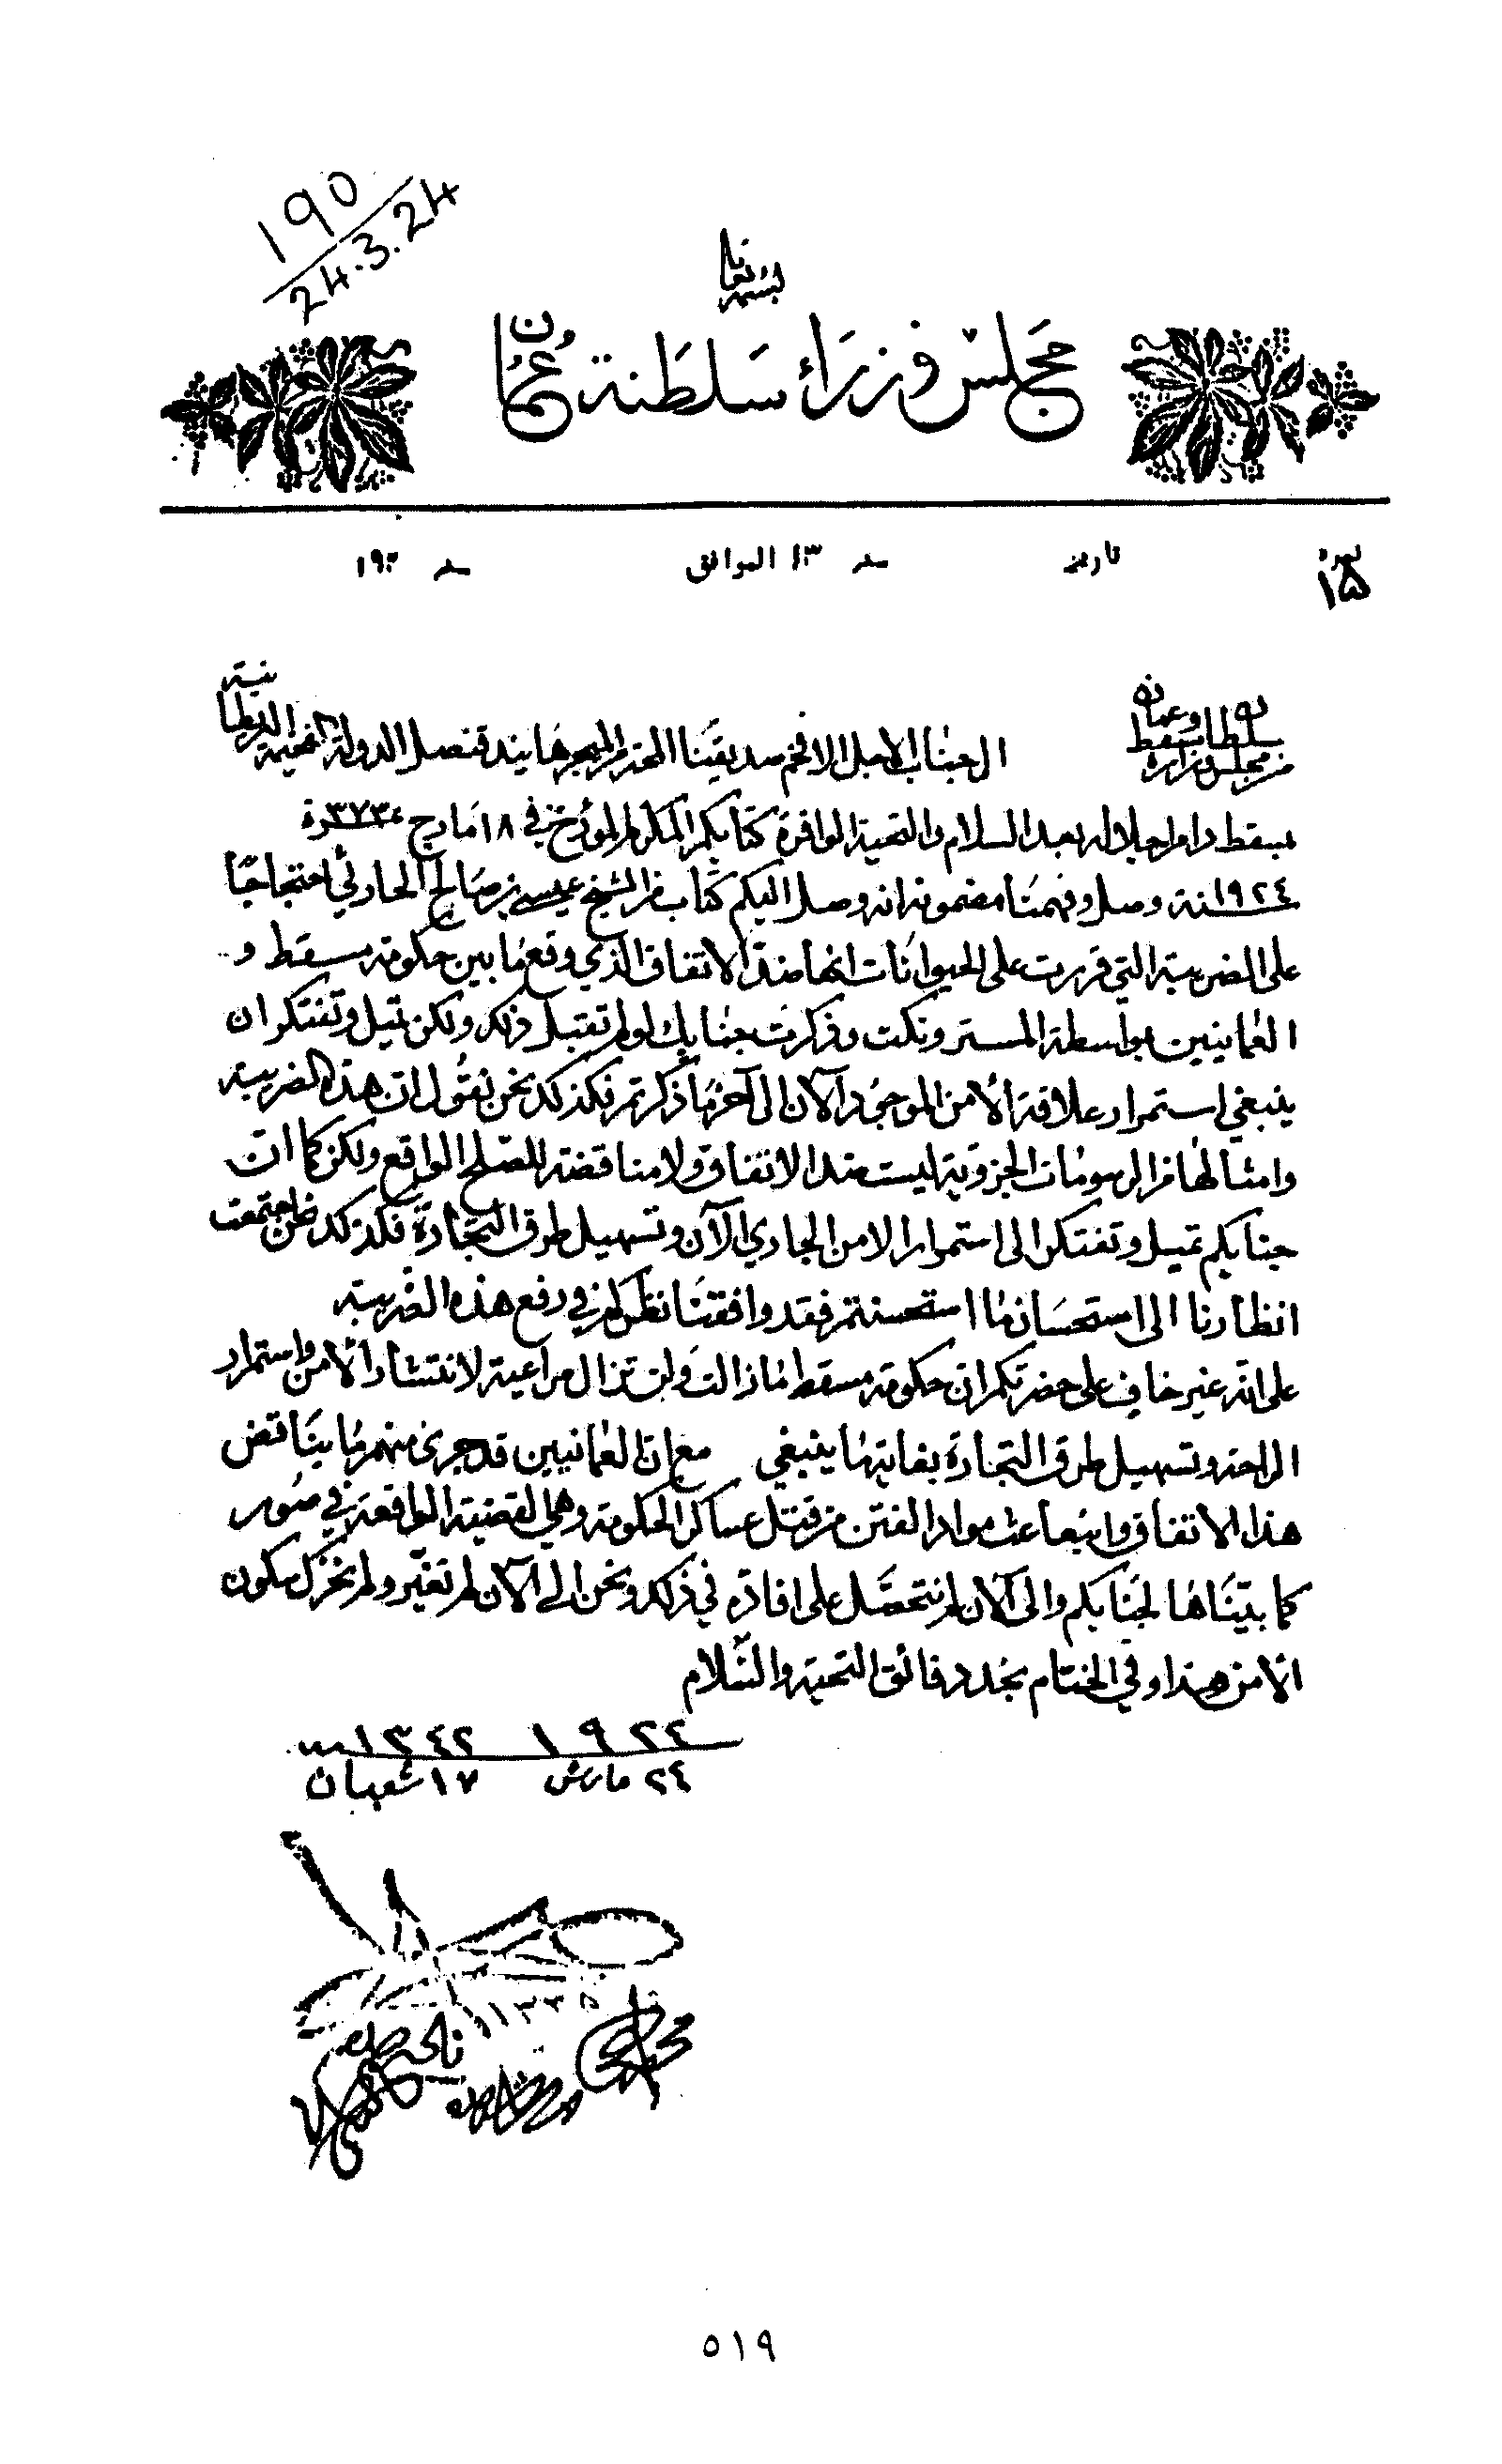 190
24.3.24
بسمه تعالى
مجلس وزراء سلطنة عمان
نمرة تاريخ سنة ١٣ الموافق سنة ١٩٢
١٥
من مجلس وزارة سلطان مسقط وعمان
الى جناب الاجل الافخم صديقنا المحترم الميجر هايند قنصل الدولة الفخيمة البريطانية
بمسقط دام اجلاله بعد السلام والتحية الوافرة كتابكم المكرم المؤرخ في ١٨ مارچ نمرة ٣٧٣
سنة ١٩٢٤ وصل وفهمنا مضمونه انه وصل اليكم كتاب من الشيخ عيسى بن صالح الحارثي احتجاجًا
على الضريبة التي قررت على الحيوانات انها ضد الاتفاق الذي وقع ما بين حكومة مسقط و
العمانيين بواسطة المستر ونكت وذكرت جنابك لو لم تقبل ذلك ولكن تميل وتفتكر ان
ينبغي استمرار علاقة الأمن الموجود الآن الى آخر ما ذكرتم فكذلك نحن نقول ان هذه الضريبة
وامثالها من الرسومات الجزوية ليست ضد الاتفاق ولا مناقضة للصلح الواقع ولكن كما ان
جنابكم تميل وتفتكر الى استمرار الامن الجاري الآن وتسهيل طرق التجارة فكذلك نحن اجتمعت
انظارنا الى استحسان ما استحسنتم فقد وافقنا نظركم في رفع هذه الضريبة
على انه غير خاف على حضرتكم ان حكومة مسقط ما زالت ولن تزال مراعية لانتشار الأمن واستمرار
الراحة وتسهيل طرق التجارة بغاية ما ينبغي مع ان العمانيين قد جرى منهم ما يناقض
هذا الاتفاق وانبعاث مواد الفتن من قتل عساكر الحكومة وهي القضية الواقعة في صور
كما بيّناها لجنابكم والى الآن لم نتحصّل على افادة في ذلك ونحن الى الآن لم نغيّر ولم نحرّك سكون
الامن هذا وفي الختام نجدد فائق التحية والسّلام
١٩٢٤ ١٣٤٢
٢٤ مارش ١٧ شعبان
٥١٩